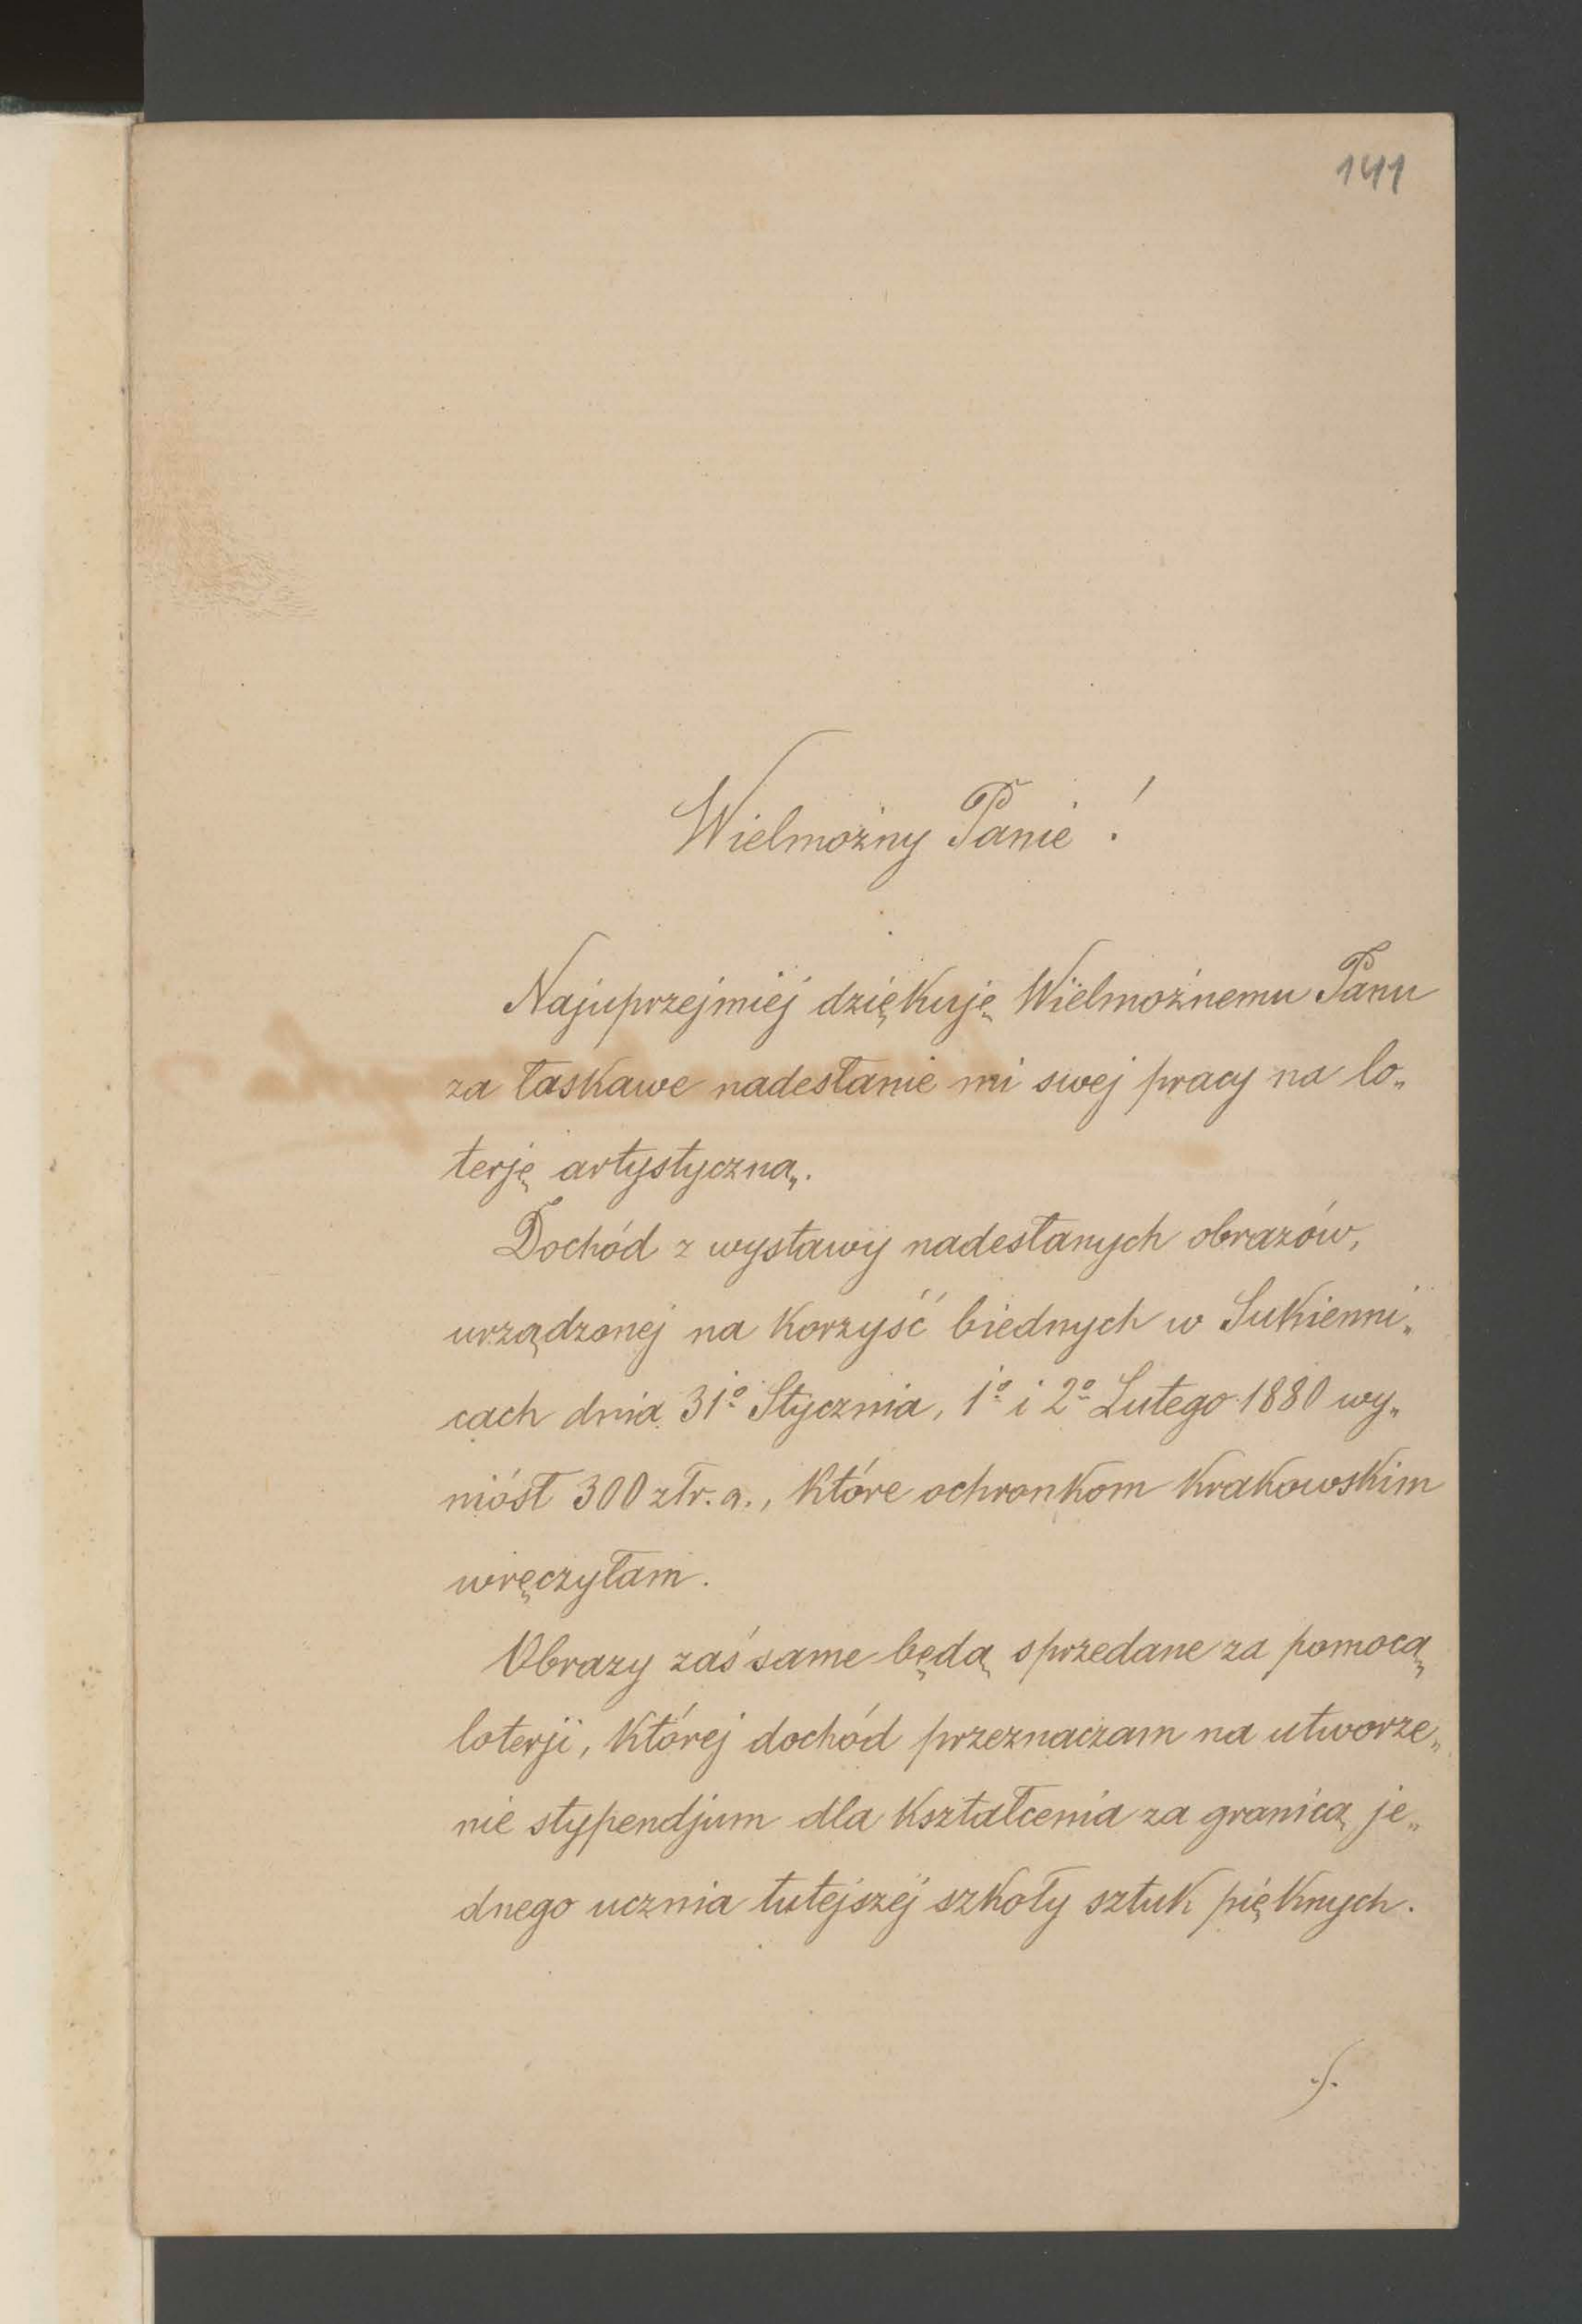 141
Wielmożny Panie !
Najuprzejmiéj dziękuję Wielmożnemu Panu
za łaskawe nadesłanie mi swej pracy na lo„
terję artystyczną.
Dochód z wystawy nadesłanych obrazów,
urządzonej na korzyść biednych w Sukienni„
cach dnia 31º Stycznia, 1º i 2º Lutego 1880 wy„
niósł 300 złr. a., które ochronkom krakowskim
wręczyłam.
Obrazy zaś same będą sprzedane za pomocą
loterji, której dochód przeznaczam na utworze„
nie stypendjum dla kształcenia za granicą je„
dnego ucznia tutejszéj szkoły sztuk pięknych.
./.